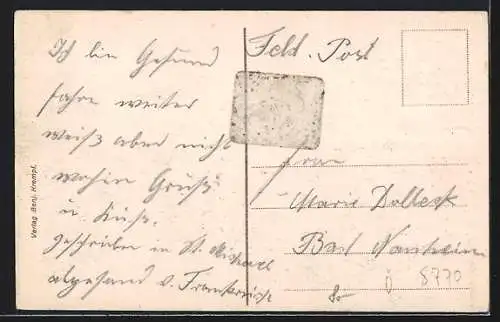 Ich bin Gesund
fahre weiter
weiß aber nicht
wohin Gruß
u. Kuss.
geschrieben in St. Michael
abgesand v. Frankreich
Verlag Benj. Krempf.
Feld. Post
Frau
Marie Dolleck
Bad Nauheim
8.-
8770